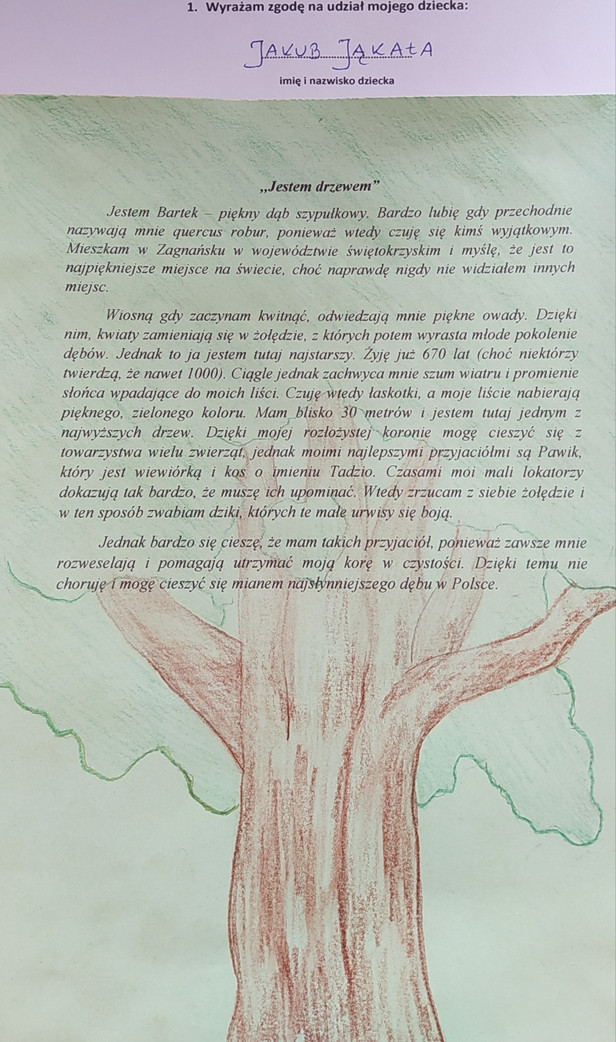 1. Wyrażam zgodę na udział mojego dziecka:
JAKUB JĄKAŁA
imię i nazwisko dziecka
„Jestem drzewem”
Jestem Bartek – piękny dąb szypułkowy. Bardzo lubię gdy przechodnie
nazywają mnie quercus robur, ponieważ wtedy czuję się kimś wyjątkowym.
Mieszkam w Zagnańsku w województwie świętokrzyskim i myślę, że jest to
najpiękniejsze miejsce na świecie, choć naprawdę nigdy nie widziałem innych
miejsc.
Wiosną gdy zaczynam kwitnąć, odwiedzają mnie piękne owady. Dzięki
nim, kwiaty zamieniają się w żołędzie, z których potem wyrasta młode pokolenie
dębów. Jednak to ja jestem tutaj najstarszy. Żyję już 670 lat (choć niektórzy
twierdzą, że nawet 1000). Ciągle jednak zachwyca mnie szum wiatru i promienie
słońca wpadające do moich liści. Czuję wtedy łaskotki, a moje liście nabierają
pięknego, zielonego koloru. Mam blisko 30 metrów i jestem tutaj jednym z
najwyższych drzew. Dzięki mojej rozłożystej koronie mogę cieszyć się z
towarzystwa wielu zwierząt, jednak moimi najlepszymi przyjaciółmi są Pawik,
który jest wiewiórką i kos o imieniu Tadzio. Czasami moi mali lokatorzy
dokazują tak bardzo, że muszę ich upominać. Wtedy zrzucam z siebie żołędzie i
w ten sposób zwabiam dziki, których te małe urwisy się boją.
Jednak bardzo się cieszę, że mam takich przyjaciół, ponieważ zawsze mnie
rozweselają i pomagają utrzymać moją korę w czystości. Dzięki temu nie
choruję i mogę cieszyć się mianem najsłynniejszego dębu w Polsce.